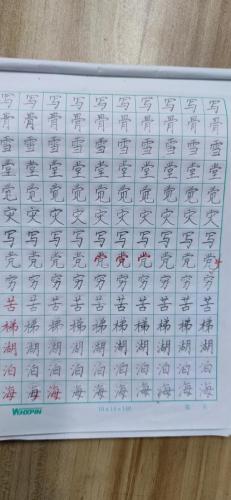 写 写 写 写 写 写 写 写 写 写
骨 骨 骨 骨 骨 骨 骨 骨 骨 骨
雪 雪 雪 雪 雪 雪 雪 雪 雪 雪
堂 堂 堂 堂 堂 堂 堂 堂 堂 堂
觉 觉 觉 觉 觉 觉 觉 觉 觉 觉
灾 灾 灾 灾 灾 灾 灾 灾 灾 灾
写 写 写 写 写 写 写 写 写 写
党 党 党 党 党 党 党 党 党 党
穷 穷 穷 穷 穷 穷 穷 穷 穷 穷
苦 苦 苦 苦 苦 苦 苦 苦 苦 苦
梯 梯 梯 梯 梯 梯 梯 梯 梯 梯
湖 湖 湖 湖 湖 湖 湖 湖 湖 湖
泊 泊 泊 泊 泊 泊 泊 泊 泊 泊
海 海 海 海 海 海 海 海 海 海
10×14=140 第 页